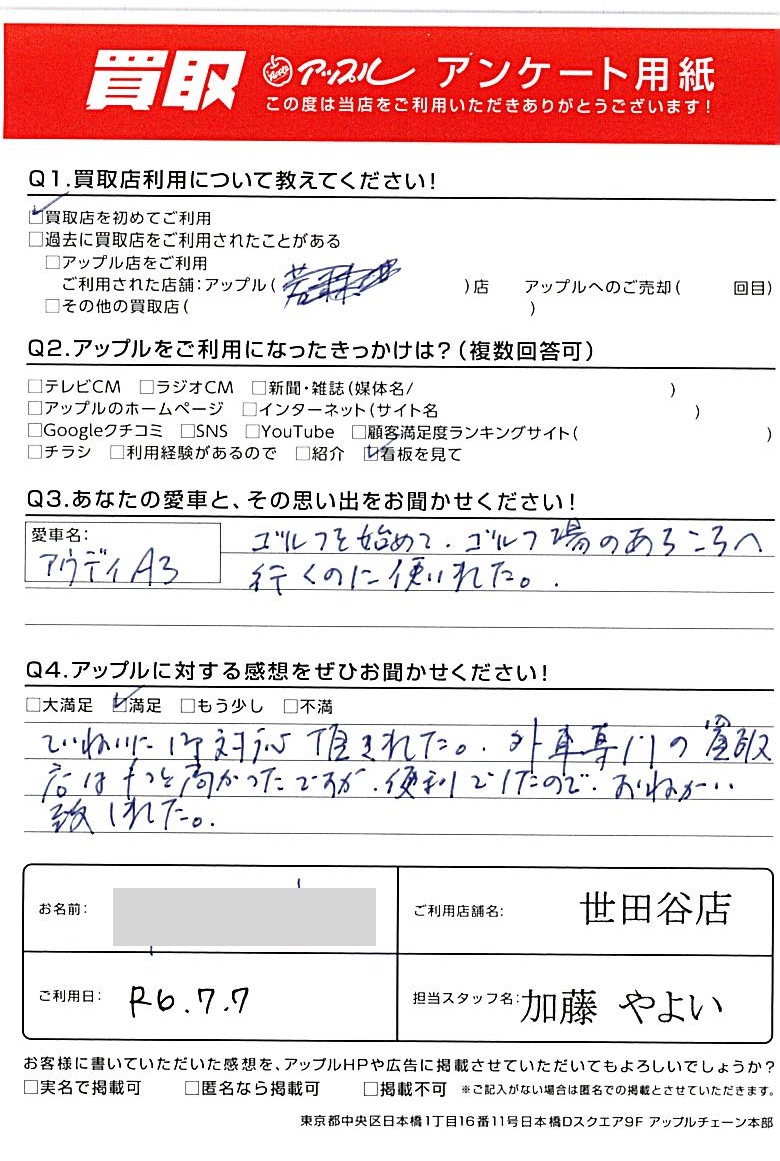 買取 アップル アンケート用紙
この度は当店をご利用いただきありがとうございます!
Q1.買取店利用について教えてください!
☑買取店を初めてご利用
□過去に買取店をご利用されたことがある
□アップル店をご利用
ご利用された店舗:アップル( )店 アップルへのご売却( 回目)
□その他の買取店( )
Q2.アップルをご利用になったきっかけは?(複数回答可)
□テレビCM □ラジオCM □新聞・雑誌(媒体名/ )
□アップルのホームページ □インターネット(サイト名 )
□Googleクチコミ □SNS □YouTube □顧客満足度ランキングサイト( )
□チラシ □利用経験があるので □紹介 ☑看板を見て
Q3.あなたの愛車と、その思い出をお聞かせください!
愛車名:
アウディA3
ゴルフを始めて.ゴルフ場のあちこちへ
行くのに使いました。.
Q4.アップルに対する感想をぜひお聞かせください!
□大満足 ☑満足 □もう少し □不満
ていねいに御対応頂きました。.外車専門の買取
店はもっと高かったですが.便利でしたので.おねがい
致しました。
お名前:
ご利用店舗名: 世田谷店
ご利用日: R6.7.7
担当スタッフ名: 加藤 やよい
お客様に書いていただいた感想を、アップルHPや広告に掲載させていただいてもよろしいでしょうか?
□実名で掲載可 □匿名なら掲載可 □掲載不可 ※ご記入がない場合は匿名での掲載とさせていただきます。
東京都中央区日本橋1丁目16番11号日本橋Dスクエア9F アップルチェーン本部